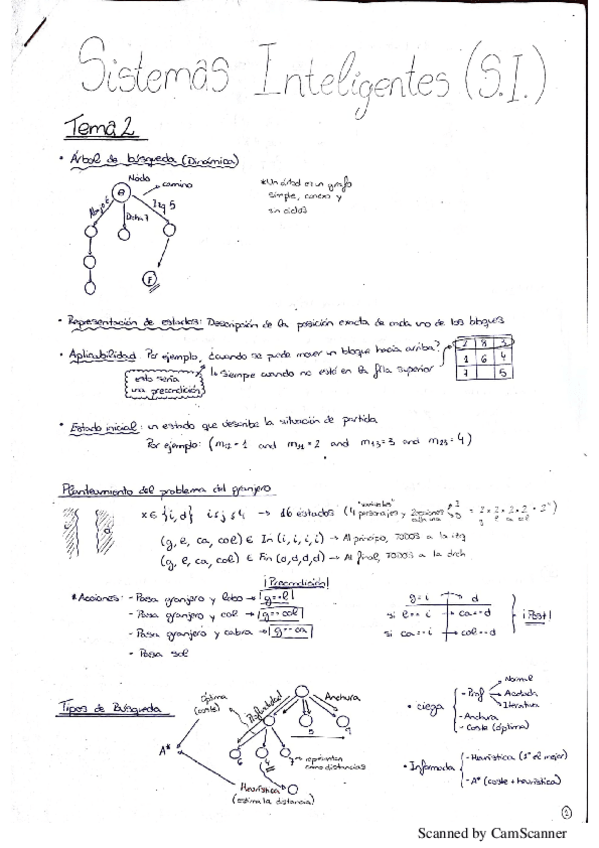 Sistemas Inteligentes (S.I.)
Tema 2
• Árbol de búsqueda (Dinámica)
Nodo
camino
Dcha 7
Izq 5
F
*Un árbol es un grafo
simple, conexo y
sin ciclos
• Representación de estados: Descripción de la posición exacta de cada uno de los bloques
• Aplicabilidad. Por ejemplo, ¿cuando se puede mover un bloque hacia arriba?
esto sería
una precondición
↳ Siempre cuando no esté en la fila superior
2 8 3
1 6 4
7 5
• Estado inicial: un estado que describe la situación de partida
Por ejemplo: (m12 = 1 and m21 = 2 and m13 = 3 and m23 = 4)
Planteamiento del problema del granjero
i
d
x ∈ {i, d} → 16 estados (4 personajes y
(g, l, ca, col) ∈ In (i, i, i, i) → Al principio, todos a la izq
(g, l, ca, col) ∈ Fin (d, d, d, d) → Al final, todos a la drch
¡Precondición!
*Acciones: - Pasa granjero y lobo → g == l
- Pasa granjero y col → g == col
- Pasa granjero y cabra → g == ca
- Pasa sol
g = i → d
si l == i → ca == d
si ca == i → col == d
¡Post!
Tipos de Búsqueda
Óptima
(coste)
¡Profundidad!
Anchura
A*
6 4 7 → representan
como distancias
Heurística
(estima la distancia)
• ciega
- Prof
Normal
Acotada
Iterativa
- Anchura
- Coste (óptima)
• Informada
- Heurística (1º el mejor)
- A* (coste + heurística)
1
Scanned by CamScanner